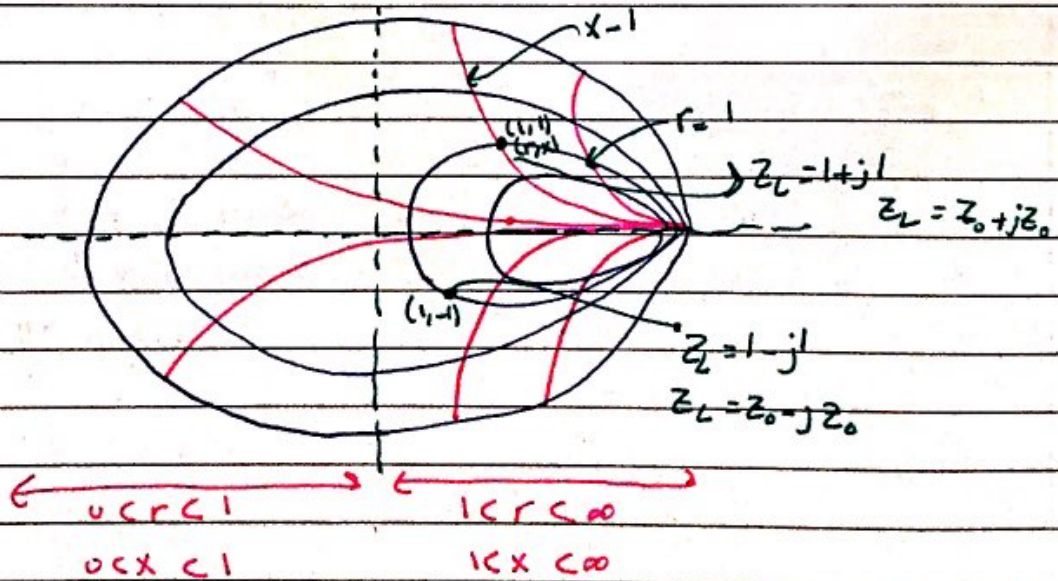 x-1
(1,1)
(r,x)
r=1
Z_L = 1+j1
Z_L = Z_0+jZ_0
(1,-1)
Z_L = 1-j1
Z_L = Z_0-jZ_0
0<r<1
1<r<∞
0<x<1
1<x<∞